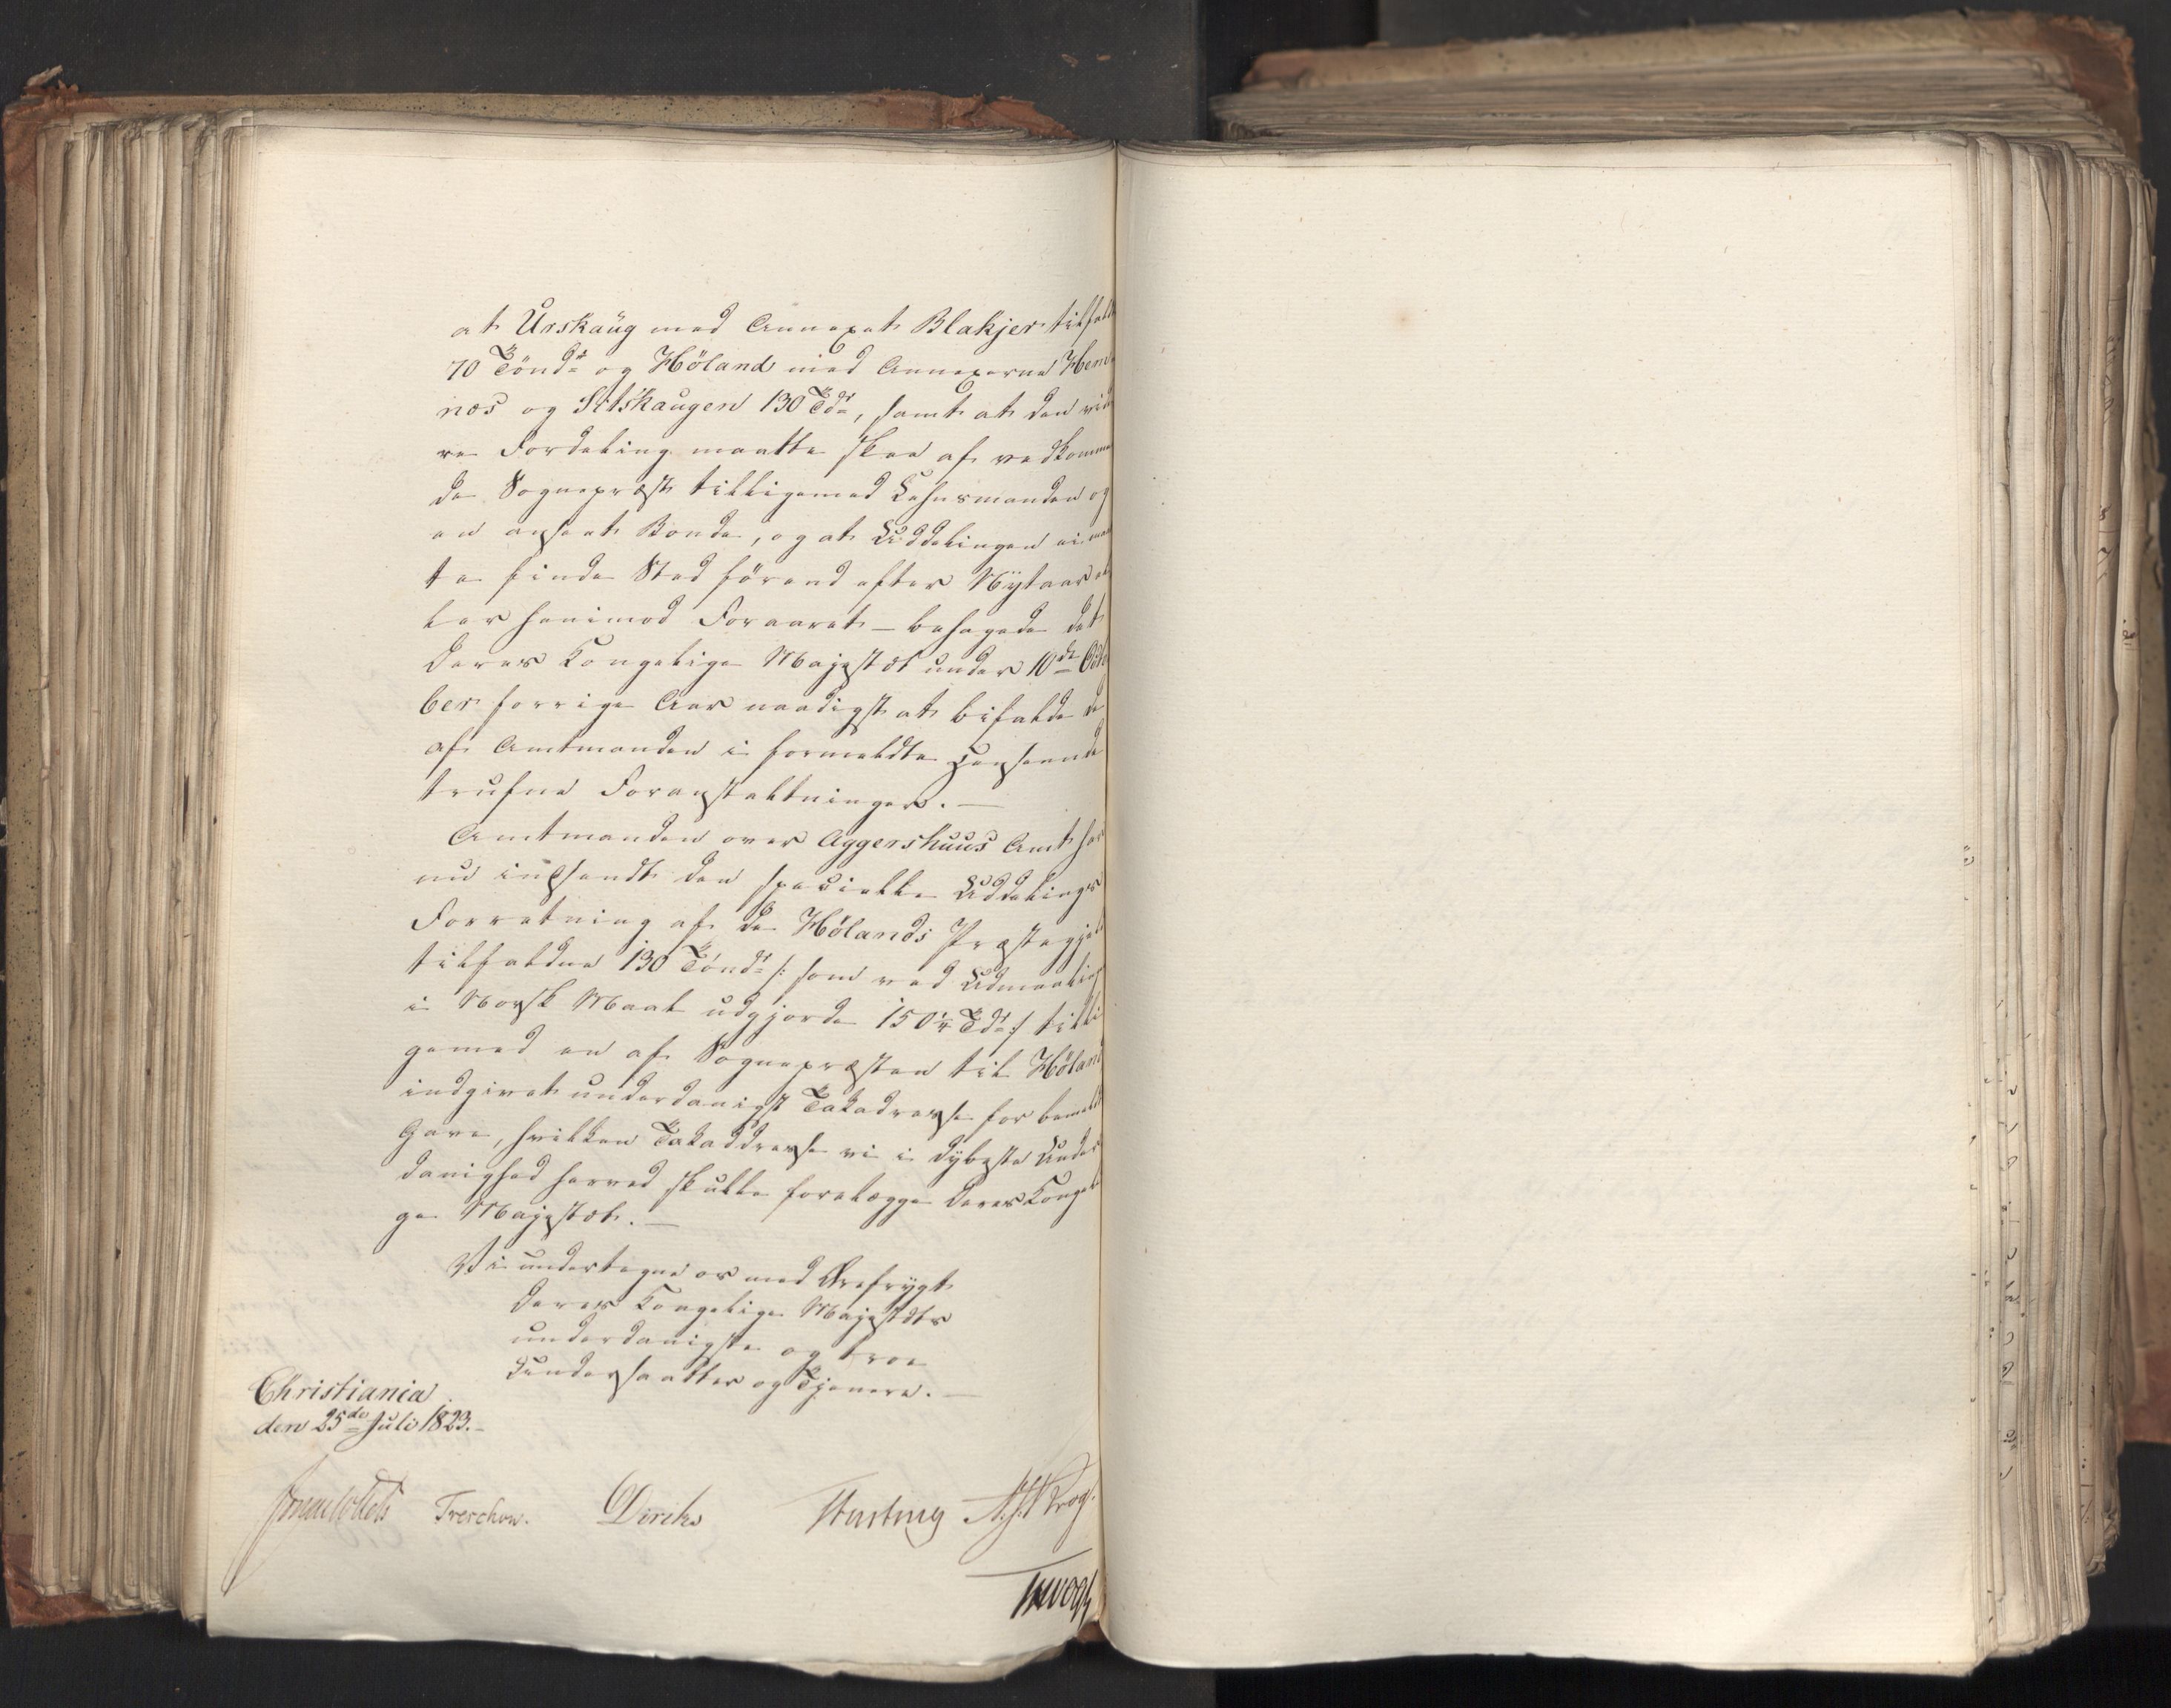 at Urskaug med Annexet Blakjer tilfaldt
70 Töndr og Höland med Annexerne Hem
næs og Setskaugen 130 Tdr, samt at den vide
re Fordeling maatte skee af vedkommen
de Sognepræst tilligemed Lehnsmanden og
en anseet Bonde, og at Uddelingen ei maat
te finde Sted förend efter Nytaar el
ler henimod Foraaret – behagede det
Deres Kongelige Majestæt under 10de Octo
ber forrige Aar naadigst at bifalde de
af Amtmanden i formeldte Henseende
trufne Foranstaltninger. –
Amtmanden over Aggershuus Amt har
nu indsendt den specielle Uddelings
Forretning af de Hölands Præstegjeld
tilfaldne 130 Töndr /: som ved Udmaaling
i Norsk Maal udgjorde 150 1/4 Tdr :/ tilli
gemed en af Sognepræsten til Höland
indgivet underdanigst Takadresse for bemeldte
Gave, hvilken Takaddresse vi i dybeste Under
danighed herved skulle forelægge Deres Kongeli
ge Majestæt. –
Vi undertegne os med Ærefrygt
Deres Kongelige Majestæts
underdanigste og troe
Undersaatter og Tjenere. –
Christiania
den 25de Juli 1823. –
Treschow. Diriks